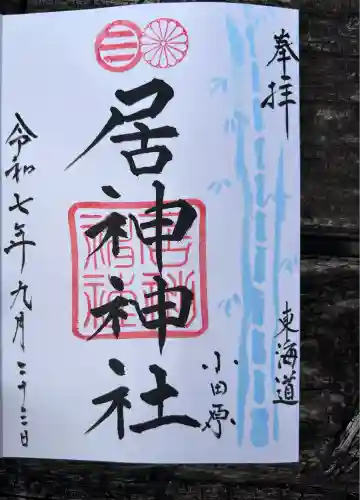 奉拝
東海道
小田原
居神神社
令和七年九月二十三日